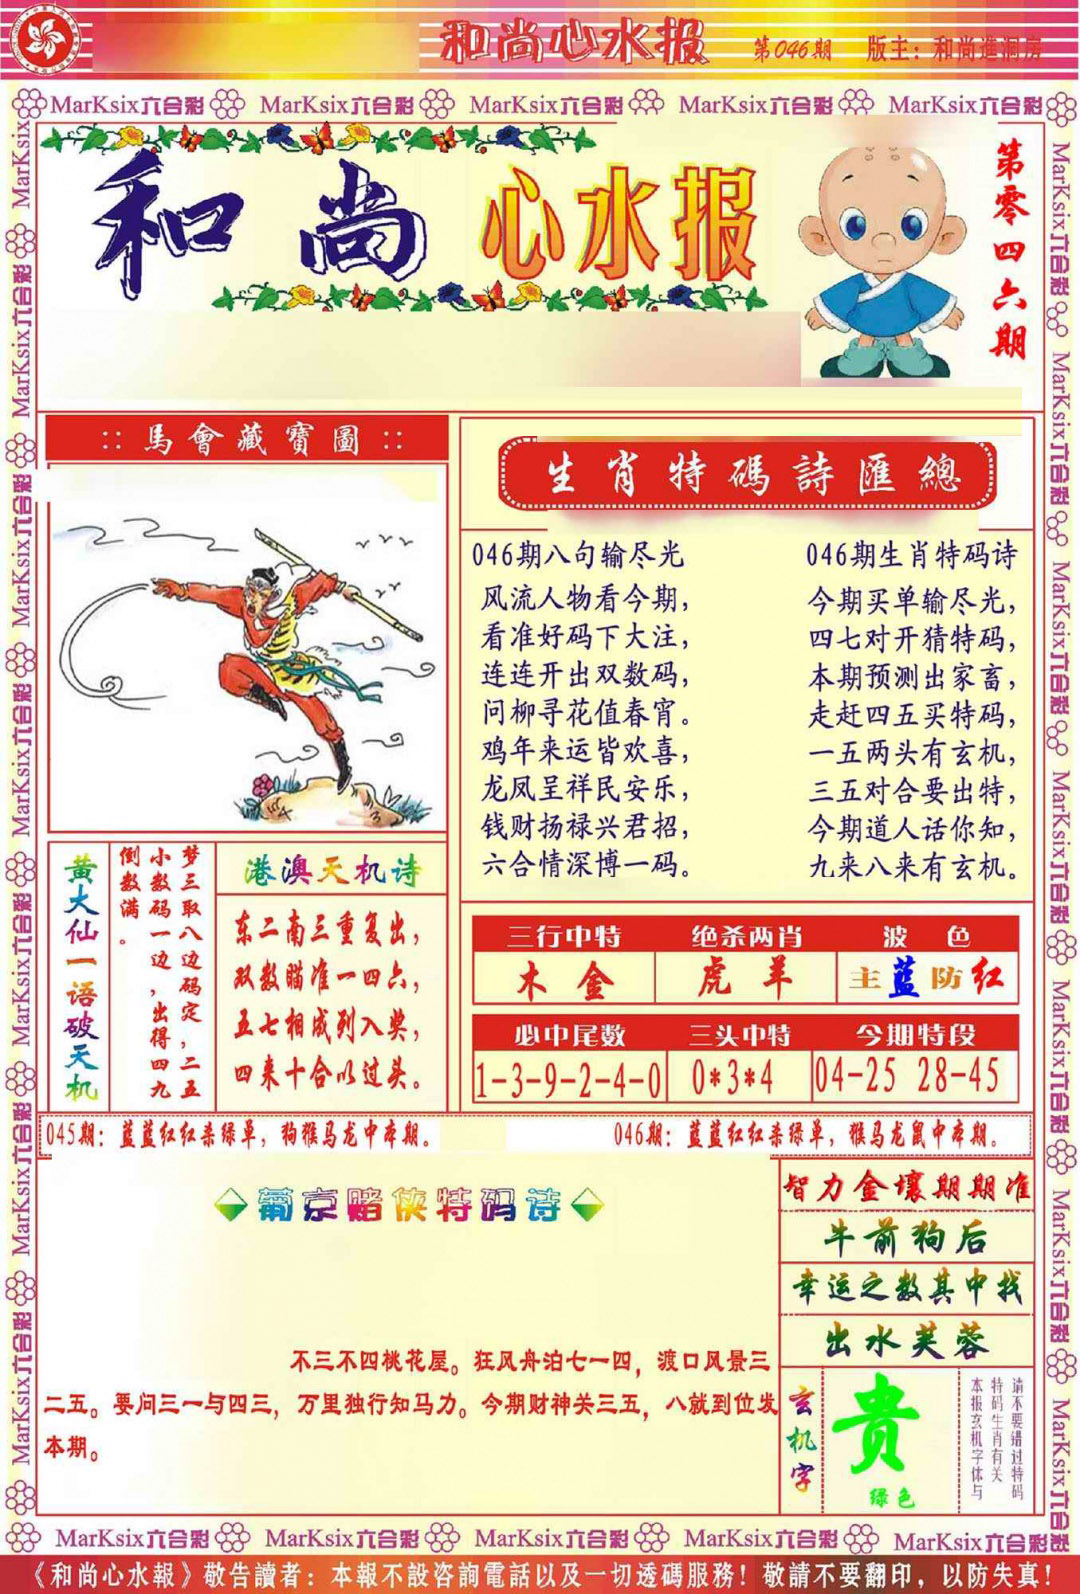 和尚心水报 第046期 版主：和尚進洞房
MarKsix六合彩 MarKsix六合彩 MarKsix六合彩 MarKsix六合彩 MarKsix六合彩
和尚心水报
第零四六期
::馬會藏寶圖::
生肖特碼詩匯總
046期八句输尽光
风流人物看今期，
看准好码下大注，
连连开出双数码，
问柳寻花值春宵。
鸡年来运皆欢喜，
龙凤呈祥民安乐，
钱财扬禄兴君招，
六合情深博一码。
046期生肖特码诗
今期买单输尽光，
四七对开猜特码，
本期预测出家畜，
走赶四五买特码，
一五两头有玄机，
三五对合要出特，
今期道人话你知，
九来八来有玄机。
黄大仙一语破天机
梦三取八边码定，二五
小数码一边，出得四九
倒数满。
港澳天机诗
东二南三重复出，
双数瞄准一四六，
五七相成列入奖，
四来十合以过头。
三行中特 绝杀两肖 波色
木金 虎羊 主蓝防红
必中尾数 三头中特 今期特段
1-3-9-2-4-0 0*3*4 04-25 28-45
045期：蓝蓝红红杀绿单，狗猴马龙中本期。
046期：蓝蓝红红杀绿单，猴马龙鼠中本期。
葡京赌侠特码诗
不三不四桃花屋。狂风舟泊七一四，渡口风景三
二五。要问三一与四三，万里独行知马力。今期财神关三五，八就到位发
本期。
智力金壤期期准
牛前狗后
幸运之数其中找
出水芙蓉
玄机字
贵
绿色
请不要错过特码
特码生肖有关
本报玄机字体与
MarKsix六合彩 MarKsix六合彩 MarKsix六合彩 MarKsix六合彩 MarKsix六合彩
《和尚心水報》敬告讀者：本報不設咨詢電話以及一切透碼服務！敬請不要翻印，以防失真！